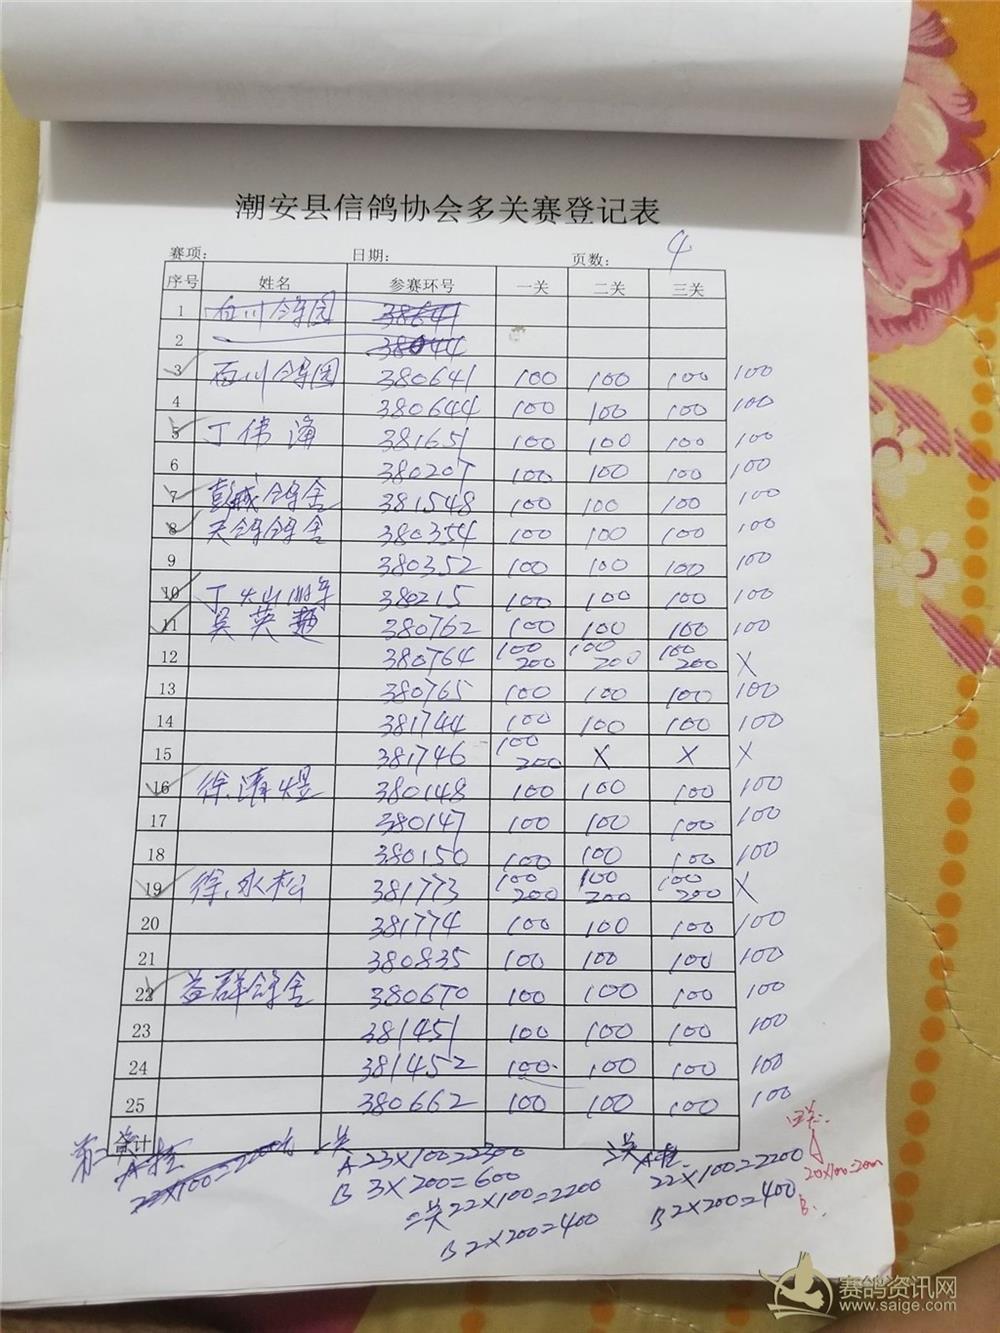 潮安县信鸽协会多关赛登记表
赛项: 日期: 页数: 4
序号 姓名 参赛环号 一关 二关 三关
1 石川鸽园 38641
2 38044
3 石川鸽园 380641 100 100 100 100
4 380644 100 100 100 100
5 丁伟 381651 100 100 100 100
6 380207 100 100 100 100
7 彭城鸽舍 381548 100 100 100 100
8 天鸽鸽舍 380354 100 100 100 100
9 380352 100 100 100 100
10 丁 380215 100 100 100 100
11 吴英 380762 100 100 100 100
12 380764 100 200 100 200 100 200 X
13 380765 100 100 100 100
14 381744 100 100 100 100
15 381746 100 200 X X X
16 徐清煜 380148 100 100 100 100
17 380147 100 100 100 100
18 380150 100 100 100 100
19 徐永松 381773 100 200 100 200 100 200 X
20 381774 100 100 100 100
21 380835 100 100 100 100
22 益群鸽舍 380670 100 100 100 100
23 381451 100 100 100 100
24 381452 100 100 100 100
25 380662 100 100 100 100
第二 计 一关 三关 A 四关
22×100=2200 A 23×100=2300 22×100=2200 20×100=2000
B 3×200=600 B 2×200=400 B
二关 22×100=2200
B 2×200=400
赛鸽资讯网
www.saige.com